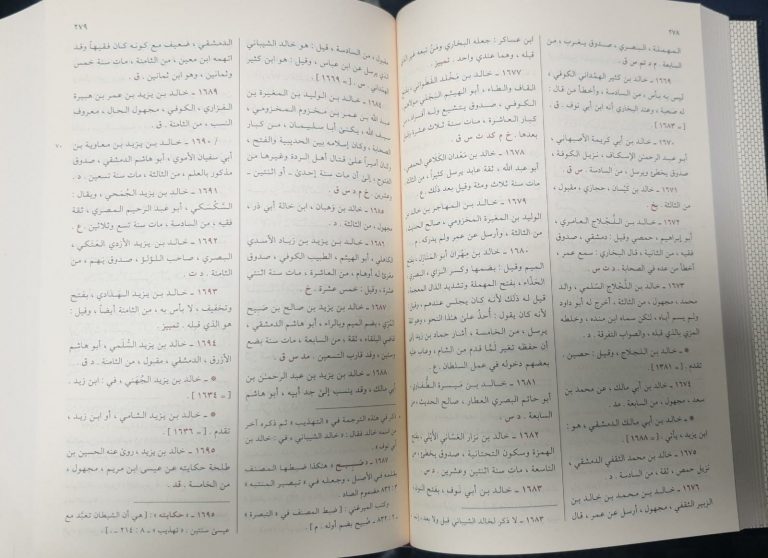 ٢٧٨
المهملة ، البصري ، صدوق يغرب ، من
السابعة . م د تم س ق .
١٦٦٩ ـ خالد بن أبي كثير الهمْداني الكوفي ،
ليس به بأس ، من السادسة ، وأخطأ من قال :
له صحبة ، وعند البخاري أنه ابن أبي نوف . ق .
[ ـ ١٦٨٣ ] .
١٦٧٠ ـ خالد بن أبي كريمة الأصبهاني ،
أبو عبد الرحمٰن الإسكاف ، نزيل الكوفة ،
صدوق يخطئ ويرسل ، من السادسة . س ق .
١٦٧١ ـ خالد بن كيسان ، حجازي ، مقبول ،
من الثالثة . بخ .
١٦٧٢ ـ خالد بن اللَّجْلاج العامري ،
أبو إبراهيم ، حمصي وقيل : دمشقي ، صدوق
فقيه ، من الثانية ، قال البخاري : سمع عمر ،
أخطأ من عده في الصحابة . د ت س .
١٦٧٣ ـ خالد بن اللَّجْلاج السُّلمي ، والد
محمد ، مجهول ، من الثالثة ، أخرج له أبو داود
ولم يسم أباه ، لكن سماه ابن منده ، وخلطه
المزي بالذي قبله ، والصواب التفرقة . د .
* ـ خالد بن اللجلاج ، وقيل : حصين .
تقدم . [ ـ ١٣٨١ ] .
١٦٧٤ ـ خالد بن أبي مالك ، عن محمد بن
سعد ، مجهول ، من السابعة . مد .
* ـ خالد بن أبي مالك الدمشقي ، هو :
ابن يزيد ، يأتي . [ = ١٦٨٨ ] .
١٦٧٥ ـ خالد بن محمد الثقفي الدمشقي ،
نزيل حمص ، ثقة ، من السادسة . د .
١٦٧٦ ـ خالد بن محمد بن خالد بن
الزبير الثقفي ، مجهول ، أرسل عن عمر ، قال
ابن عساكر : جعله البخاري ومَنْ تبعه غير الذي
قبله ، وهما عندي واحد . تمييز .
١٦٧٧ ـ خالد بن مَخْلد القَطَواني ، بفتح
القاف والطاء ، أبو الهيثم البَجَلي مولاهم
الكوفي ، صدوق يتشيع وله أفراد ، من
كبار العاشرة ، مات سنة ثلاث عشرة وقيل
بعدها . خ م كد ت س ق .
١٦٧٨ ـ خالد بن مَعْدان الكَلاعي الحمصي
أبو عبد الله ، ثقة عابد يرسل كثيراً ، من الثالثة
مات سنة ثلاث ومئة وقيل بعد ذلك . ع .
١٦٧٩ ـ خالد بن المهاجر بن خالد بن
الوليد بن المغيرة المخزومي ، صالح الحديث
من الثالثة ، وأرسل عن عمر ولم يدركه . م .
١٦٨٠ ـ خالد بن مِهْران أبو المَنَازل ، بفتح
الميم وقيل : بضمها وكسر الزاي ، البصري
الحذاء ، بفتح المهملة وتشديد الذال المعجمة
قيل له ذلك لأنه كان يجلس عندهم ، وقيل
لأنه كان يقول : أُحْذُ على هذا النحو ، وهو ثقة
يرسل ، من الخامسة ، أشار حماد بن زيد إلى
أن حفظه تغير لمَّا قدم من الشام ، وعاب عليه
بعضهم دخوله في عمل السلطان . ع .
١٦٨١ ـ خالد بن ميسرة الطُّفَاوي
أبو حاتم البصري العطار ، صالح الحديث ، من
السابعة . د س .
١٦٨٢ ـ خالد بن نزار الغسّاني الأَيْلي ، بفتح
الهمزة وسكون التحتانية ، صدوق يخطئ ، من
التاسعة ، مات سنة اثنتين وعشرين . د س .
١٦٨٣ ـ خالد بن أبي نَوف ، بفتح النون
١٦٨٣ ـ لا ذكر لخالد الشيباني قبل ولا بعد
٢٧٩
مقبول ، من السادسة ، قيل : هو خالد الشيباني
الذي يرسل عن ابن عباس ، وقيل : هو ابن كثير
. س . [ = ١٦٦٩ ] .
١٦٨٤ ـ خالد بن الوليد بن المغيرة بن
عبد الله بن عمر بن مخزوم المخزومي ،
سيف الله ، يكنى أبا سليمان ، من كبار
الصحابة ، وكان إسلامه بين الحديبية والفتح ،
وكان أميراً على قتال أهل الردة وغيرها من
الفتوح ، إلى أن مات سنة إحدى ـ أو اثنتين ـ
وعشرين . خ م د س ق .
١٦٨٥ ـ خالد بن وَهْبان ، ابن خالة أبي ذر ،
مجهول ، من الثالثة . د .
١٦٨٦ ـ خالد بن يزيد بن زياد الأسدي
الكاهلي ، أبو الهيثم ، الطبيب الكوفي ، صدوق
مقرئ له أوهام ، من العاشرة ، مات سنة اثنتي
عشرة ، وقيل : خمس عشرة . خ .
١٦٨٧ ـ خالد بن يزيد بن صالح بن صُبيح
المُرِّي ، بضم الميم وبالراء ، أبو هاشم الدمشقي ،
قاضي البلقاء ، ثقة ، من السابعة ، مات سنة بضع
وستين ، وقد قارب التسعين . مد س ق .
١٦٨٨ ـ خالد بن يزيد بن عبد الرحمٰن بن
أبي مالك ، وقد ينسب إلى جد أبيه ، أبو هاشم
ذكر في هذه الترجمة في « التهذيب » ثم ذكره آخر
من اسمه خالد فقال : « خالد الشيباني ، في : خالد بن
أبي نوف » .
١٦٨٧ ـ « صُبَيح » هكذا ضبطها المصنف
بقلمه في الأصل ، وجعله في « تبصير المنتبه »
٣ : ٨٣٦ مضموم الضاد
وكتب الميرغني : [ ضبط المصنف في « التبصرة »
٢ : ٨٣٢ ـ صبيح بضم أوله . م ] .
الدمشقي ، ضعيف مع كونه كان فقيهاً وقد
اتهمه ابن معين ، من الثامنة ، مات سنة خمس
وثمانين ، وهو ابن ثمانين . ق .
١٦٨٩ ـ خالد بن يزيد بن عمر بن هبيرة
الفزاري ، الكوفي ، مجهول الحال ، معروف
النسب ، من الثامنة . ق .
٧٠
/ ١٦٩٠ ـ خالد بن يزيد بن معاوية بن
أبي سفيان الأموي ، أبو هاشم الدمشقي ، صدوق
مذكور بالعلم ، من الثالثة ، مات سنة تسعين . د .
١٦٩١ ـ خالد بن يزيد الجُمَحي ، ويقال :
السَّكْسَكي ، أبو عبد الرحيم المصري ، ثقة
فقيه ، من السادسة ، مات سنة تسع وثلاثين . ع .
١٦٩٢ ـ خالد بن يزيد الأزدي العتكي ،
البصري ، صاحب اللؤلؤ ، صدوق يهم ، من
الثامنة . د ت .
١٦٩٣ ـ خالد بن يزيد الهَدَادي ، بفتح
وتخفيف ، لا بأس به ، من الثامنة أيضاً ، وقيل :
هو الذي قبله . تمييز .
١٦٩٤ ـ خالد بن يزيد السُّلمي ، أبو هاشم
الأزرق ، الدمشقي ، مقبول ، من الثامنة . د ق .
* ـ خالد بن يزيد الجُهَني ، في : ابن زيد .
[ ـ ١٦٣٤ ] .
* ـ خالد بن يزيد الشامي ، أو ابن زيد ،
تقدم . [ ـ ١٦٣٦ ] .
١٦٩٥ ـ خالد بن يزيد ، روى عنه الحسين بن
طلحة حكايته عن عيسى ابن مريم ، مجهول ،
من الخامسة . قد .
١٦٩٥ ـ « حكايته » : [ هي أن الشيطان تعبّد مع
عيسى سنتين : « تهذيب » ـ ٨ : ٢١٤ ـ . ] .